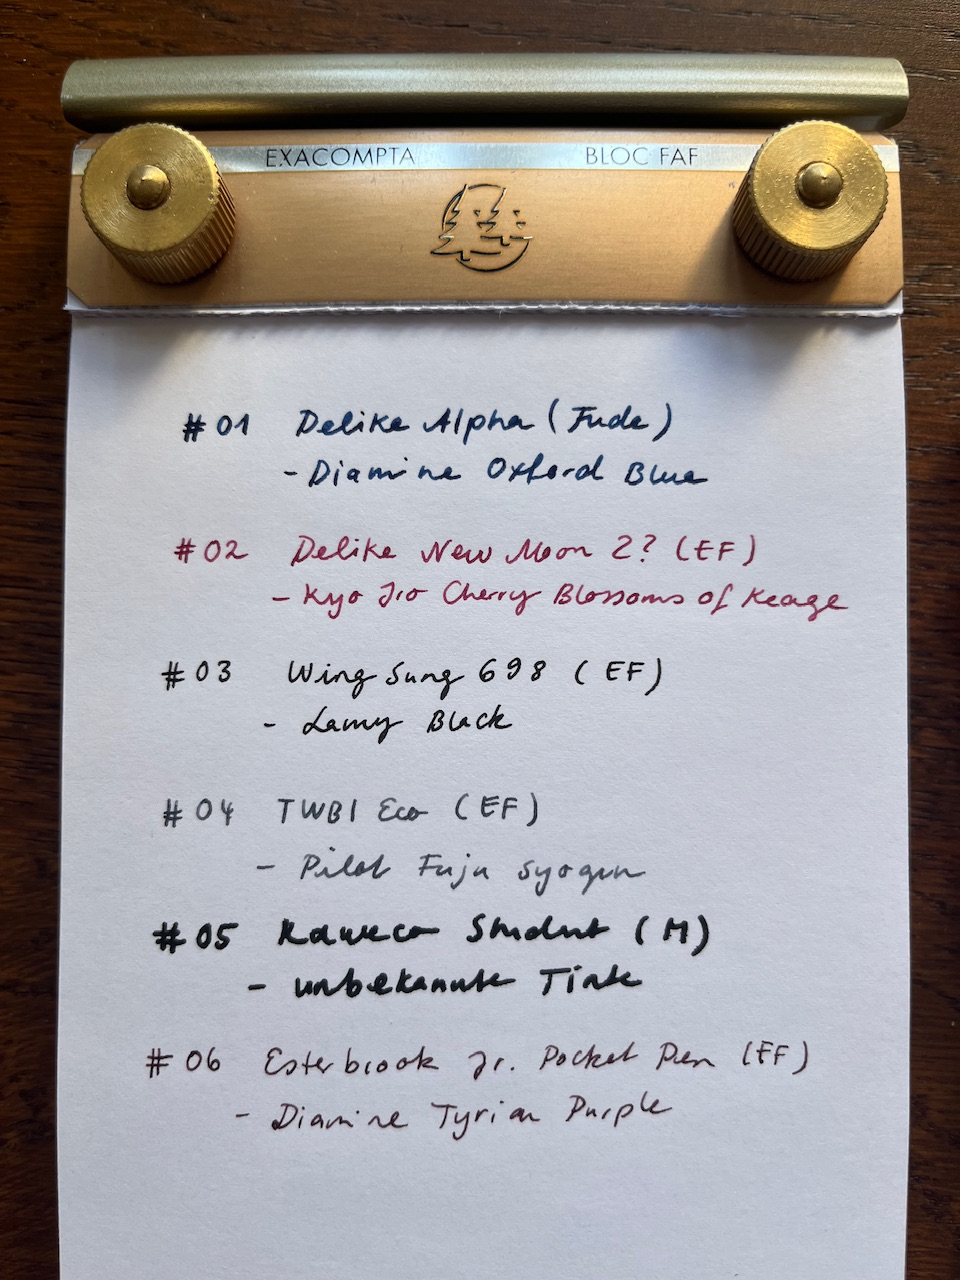 EXACOMPTA BLOC FAF
#01 Delike Alpha (Fude)
- Diamine Oxford Blue
#02 Delike New Moon 2? (EF)
- Kyo Iro Cherry Blossoms of Keage
#03 Wing Sung 698 (EF)
- Lamy Black
#04 TWBI Eco (EF)
- Pilot Fuju Syogun
#05 Kaweco Student (M)
- unbekannte Tinte
#06 Esterbrook Jr. Pocket Pen (EF)
- Diamine Tyrian Purple